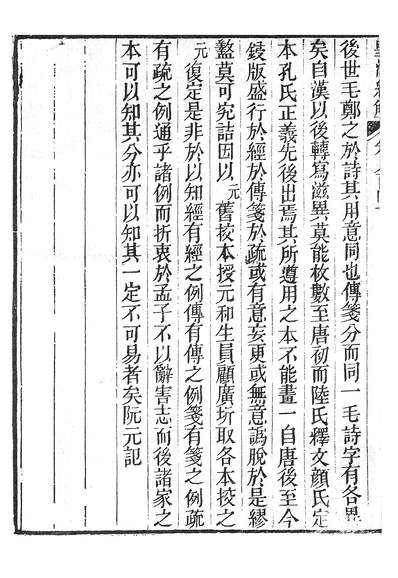 後世毛鄭之於詩其用意同也傳箋分而同一毛詩字有各異
矣自漢以後轉寫滋異莫能枚數至唐初而陸氏釋文顏氏定
本孔氏正義先後出焉其所遵用之本不能畫一自唐後至今
鋟版盛行於經於傳箋於疏或有意妄更或無意譌脫於是繆
盭莫可究詰因以元舊挍本授元和生員顧廣圻取各本挍之
元復定是非於以知經有經之例傳有傳之例箋有箋之例疏
有疏之例通乎諸例而折衷於孟子不以辭害志而後諸家之
本可以知其分亦可以知其一定不可易者矣阮元記